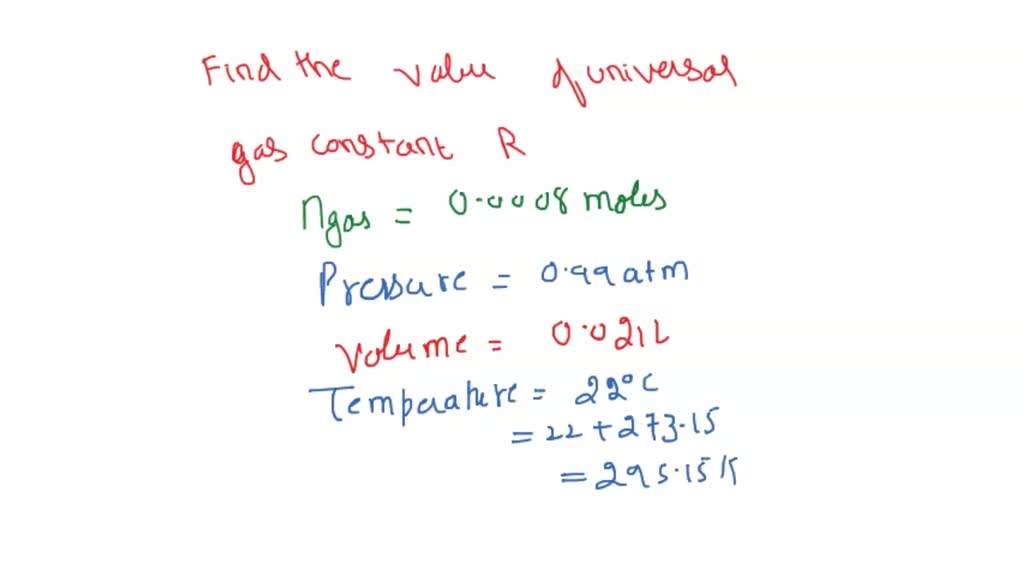 Find the value of universal
gas constant R
ngas = 0.0008 moles
Pressure = 0.99 atm
Volume = 0.021L
Temperature = 22°C
= 22 + 273.15
= 295.15 K